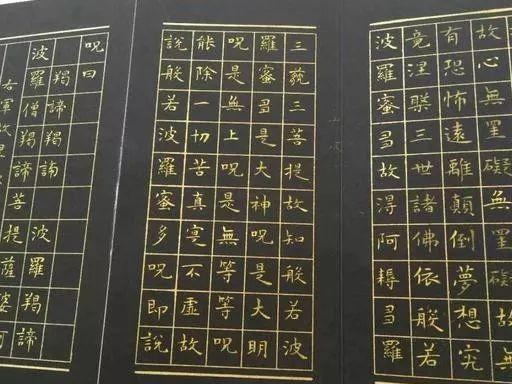 故心無罣礙無罣礙故無
有恐怖遠離顛倒夢想究
竟涅槃三世諸佛依般若
波羅蜜多故得阿耨多羅
三藐三菩提故知般若波
羅蜜多是大神呪是大明
呪是無上呪是無等等呪
能除一切苦真實不虛故
說般若波羅蜜多呪即說
呪曰
羯諦羯諦波羅羯諦
波羅僧羯諦菩提薩婆訶